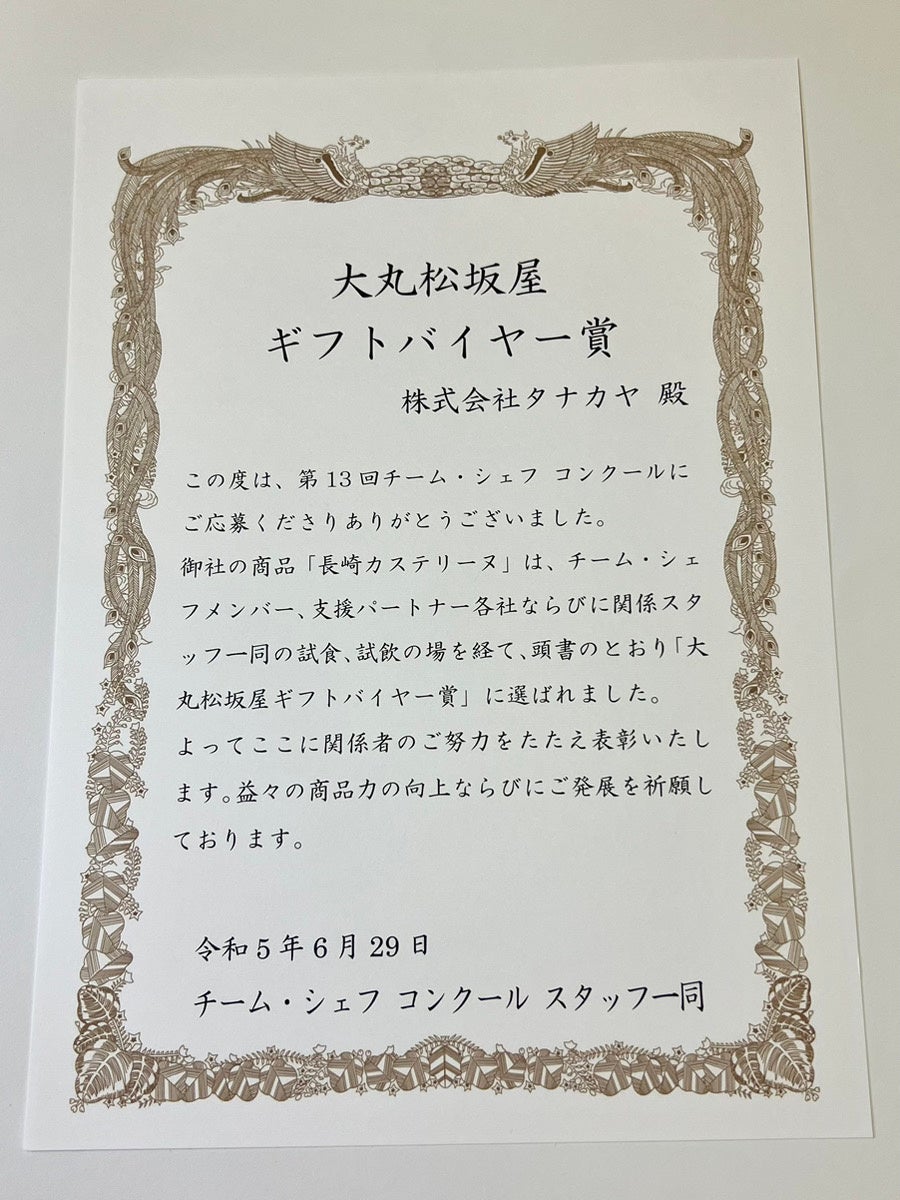 大丸松坂屋
ギフトバイヤー賞
株式会社タナカヤ 殿
この度は、第13回チーム・シェフ コンクールに
ご応募くださりありがとうございました。
御社の商品「長崎カステリーヌ」は、チーム・シェ
フメンバー、支援パートナー各社ならびに関係スタ
ッフ一同の試食、試飲の場を経て、頭書のとおり「大
丸松坂屋ギフトバイヤー賞」に選ばれました。
よってここに関係者のご努力をたたえ表彰いたし
ます。益々の商品力の向上ならびにご発展を祈願し
ております。
令和5年6月29日
チーム・シェフ コンクール スタッフ一同